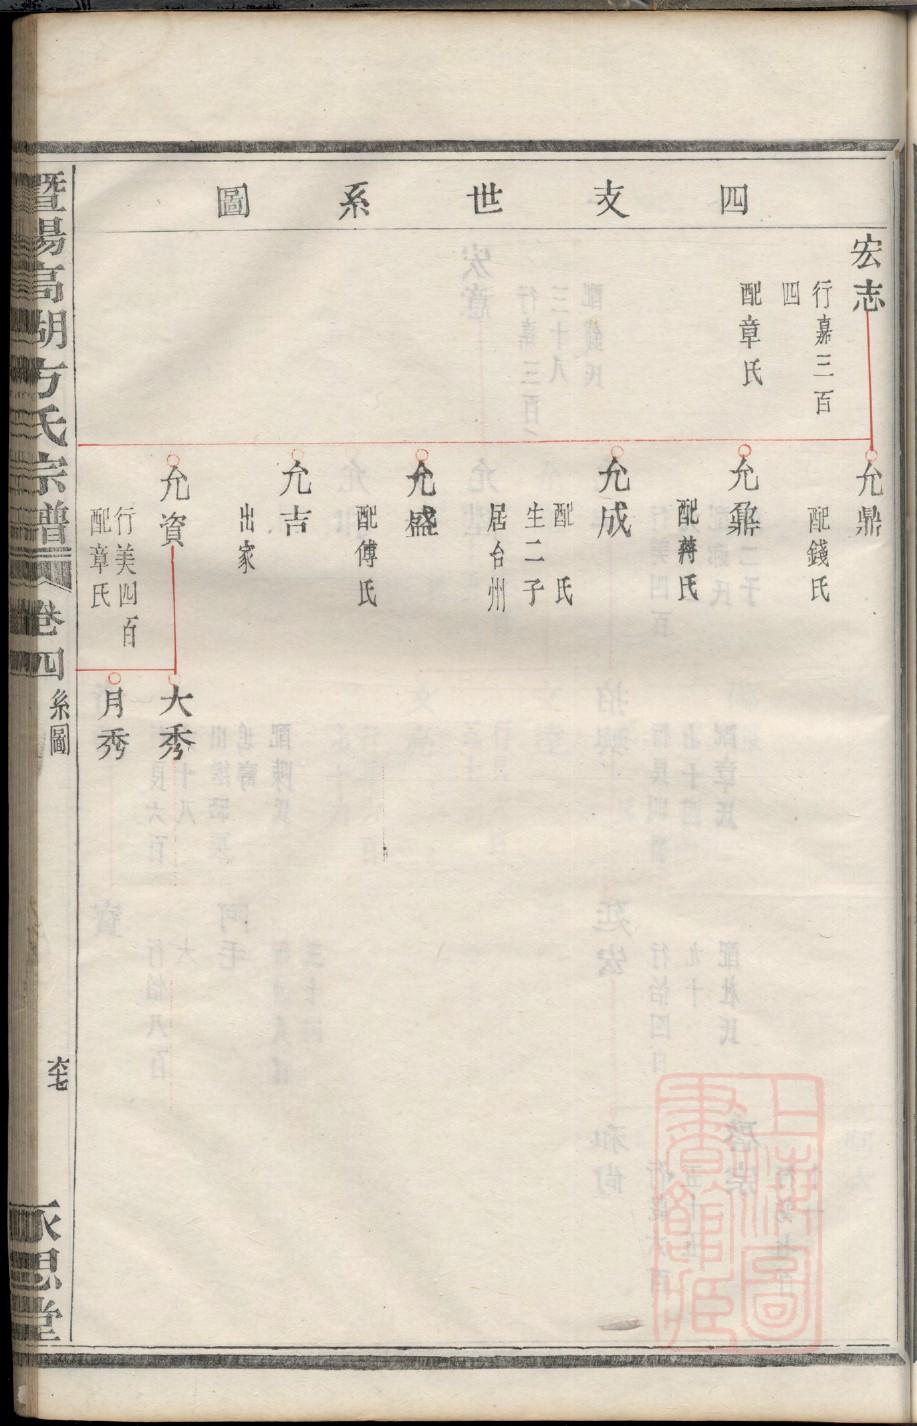 四支世系圖
宏志
行嘉三百
四
配章氏
允鼎
配錢氏
允鼐
配蔣氏
允成
配　氏
生二子
居台州
允盛
配傅氏
允吉
出家
允資
行美四百
配章氏
大秀
月秀
暨陽高湖方氏宗譜
卷四
系圖
六七
永思堂
上海圖書館藏